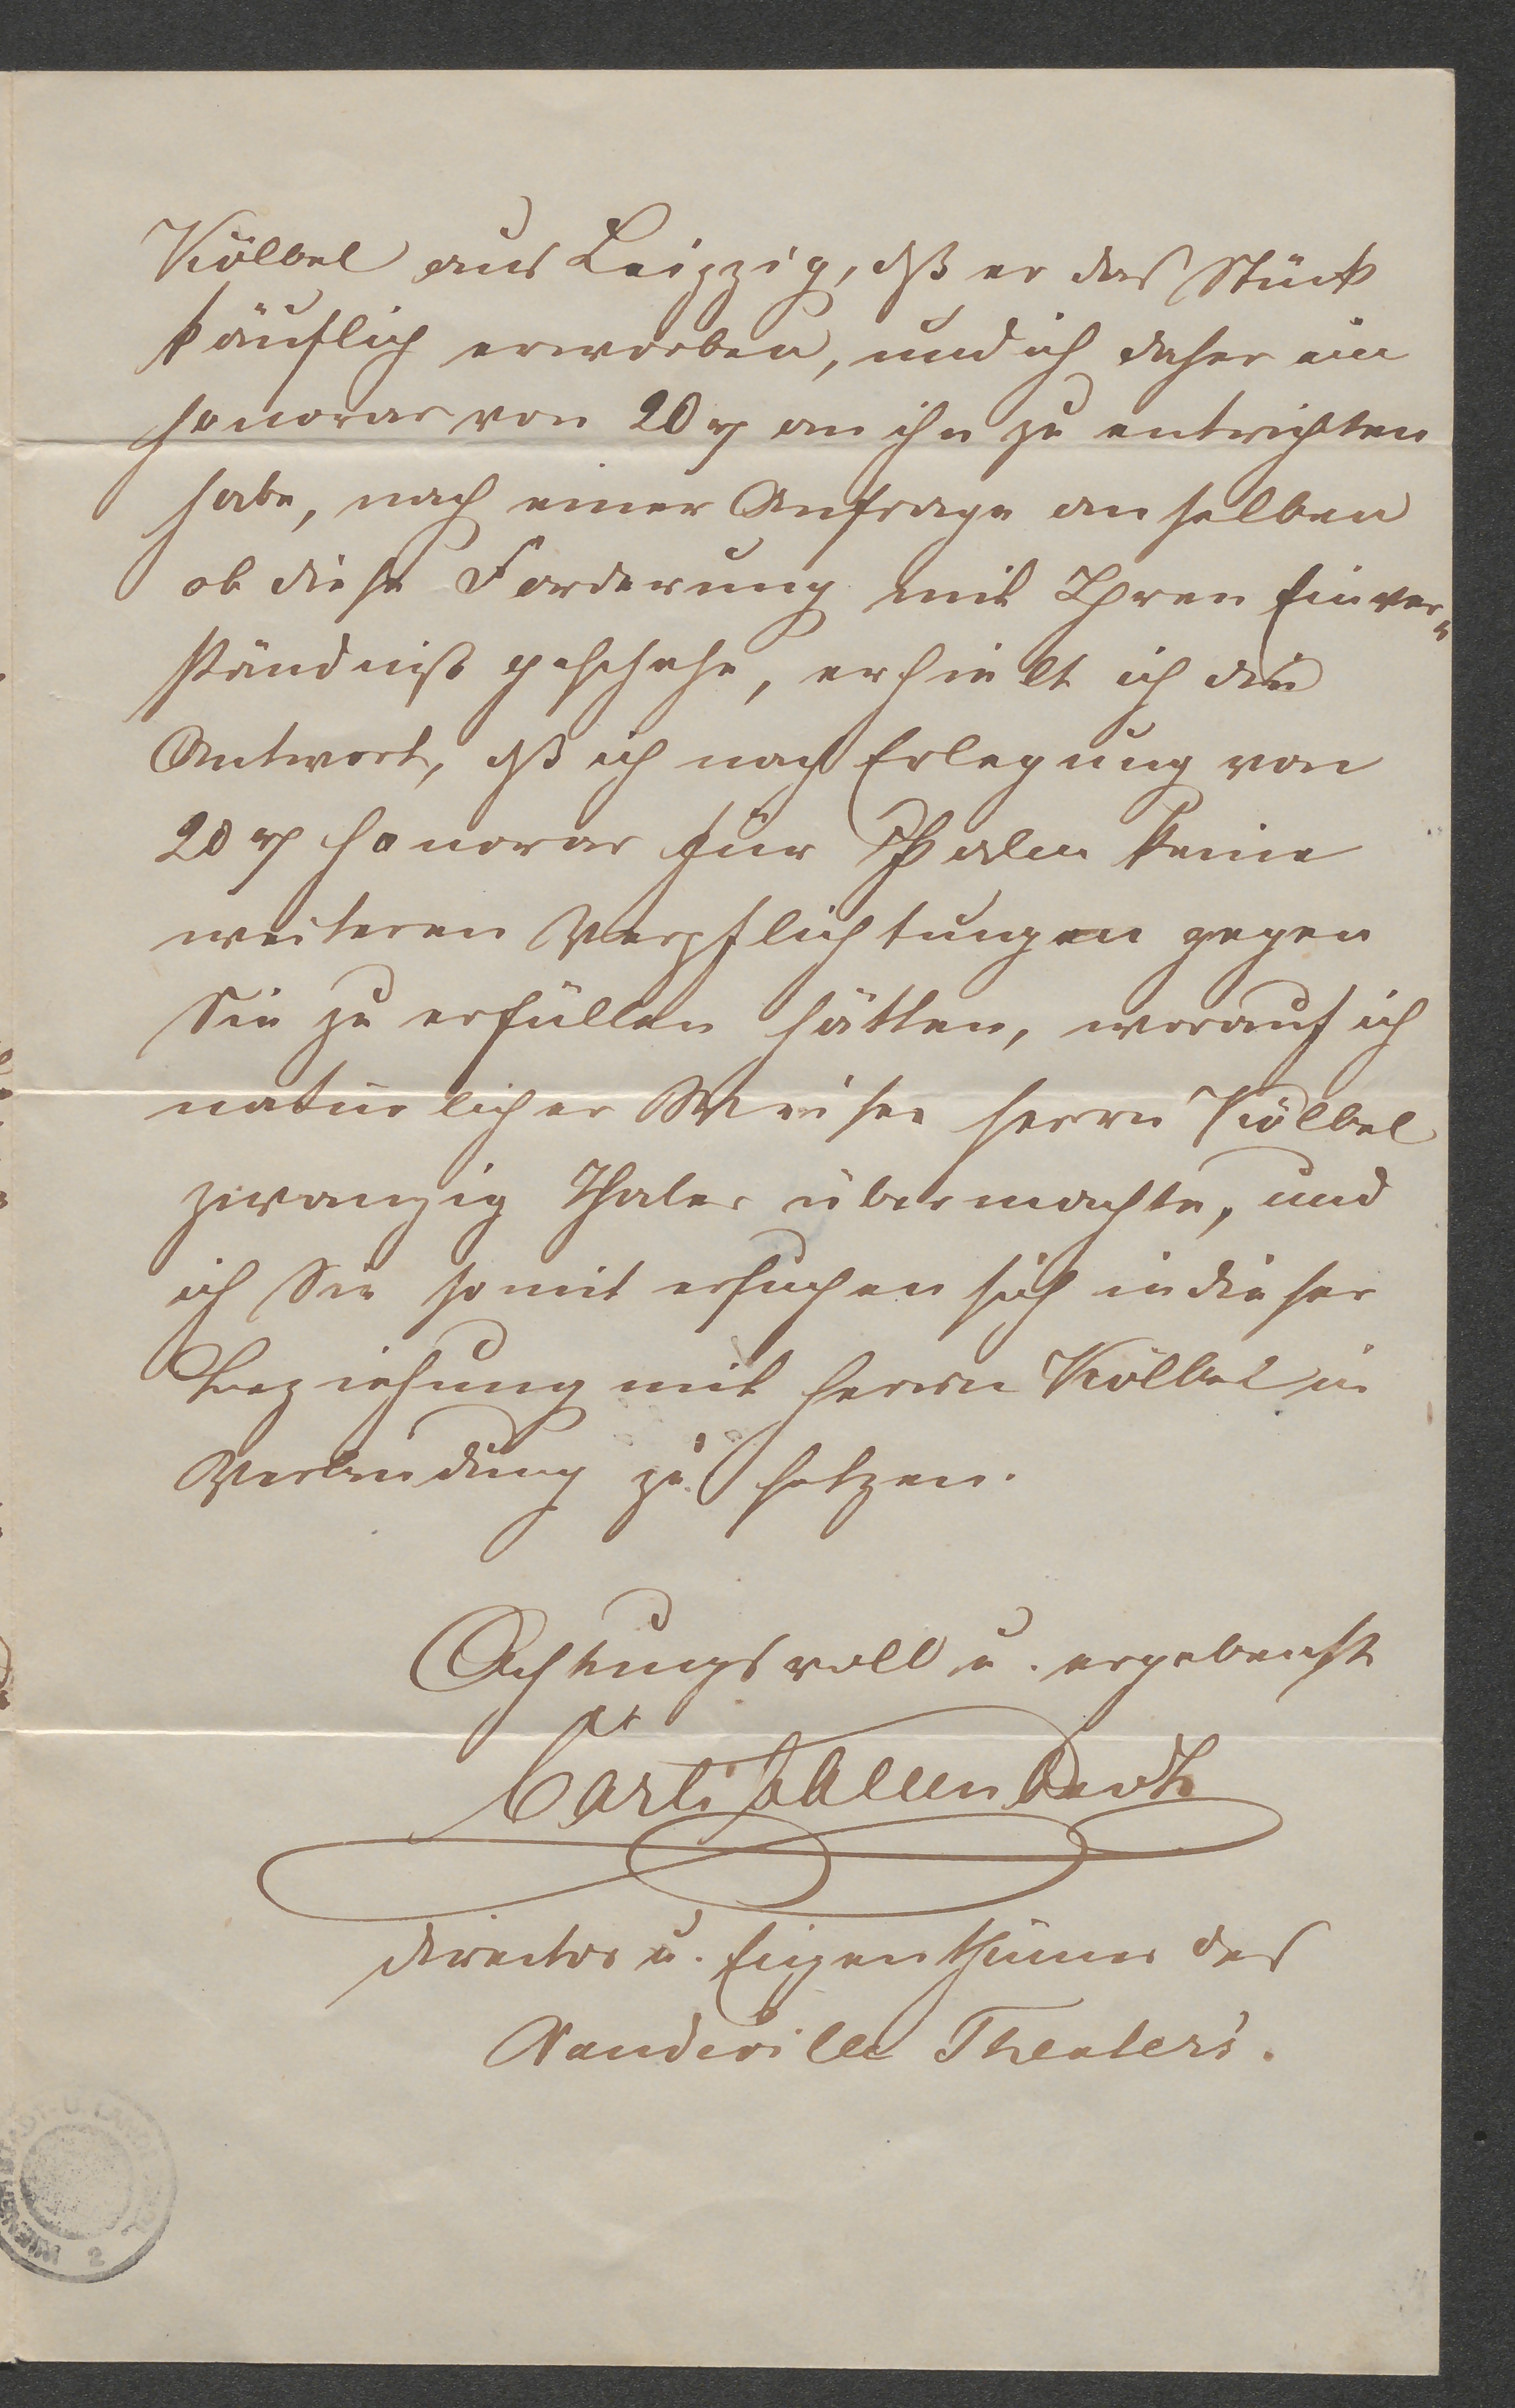 Kölbel aus Leipzig, dß er das Stück
käuflich erworben, und ich daher ein
Honorar von 20 rℓ an ihn zu entrichten
habe, nach einer Anfrage an selben
ob diese Forderung mit Ihren Einver„
ständniß geschehe, erhielt ich die
Antwort, dß ich nach Erlegung von
20 rℓ Honorar für keine
weiteren Verpflichtungen gegen
Sie zu erfüllen hätten, worauf ich
natürlicher Weise Herrn Kölbel
zwanzig Thaler übermachte, und
ich Sie somit ersuchen sich in dieser
Beziehung mit Herrn Kölbel in
Verbindung zu setzen.
Achtungsvoll u. ergebenst
Carli Callenbach
Director u. Eigenthümer des
Vaudeville Theaters.
STADT U.
WIENER
2